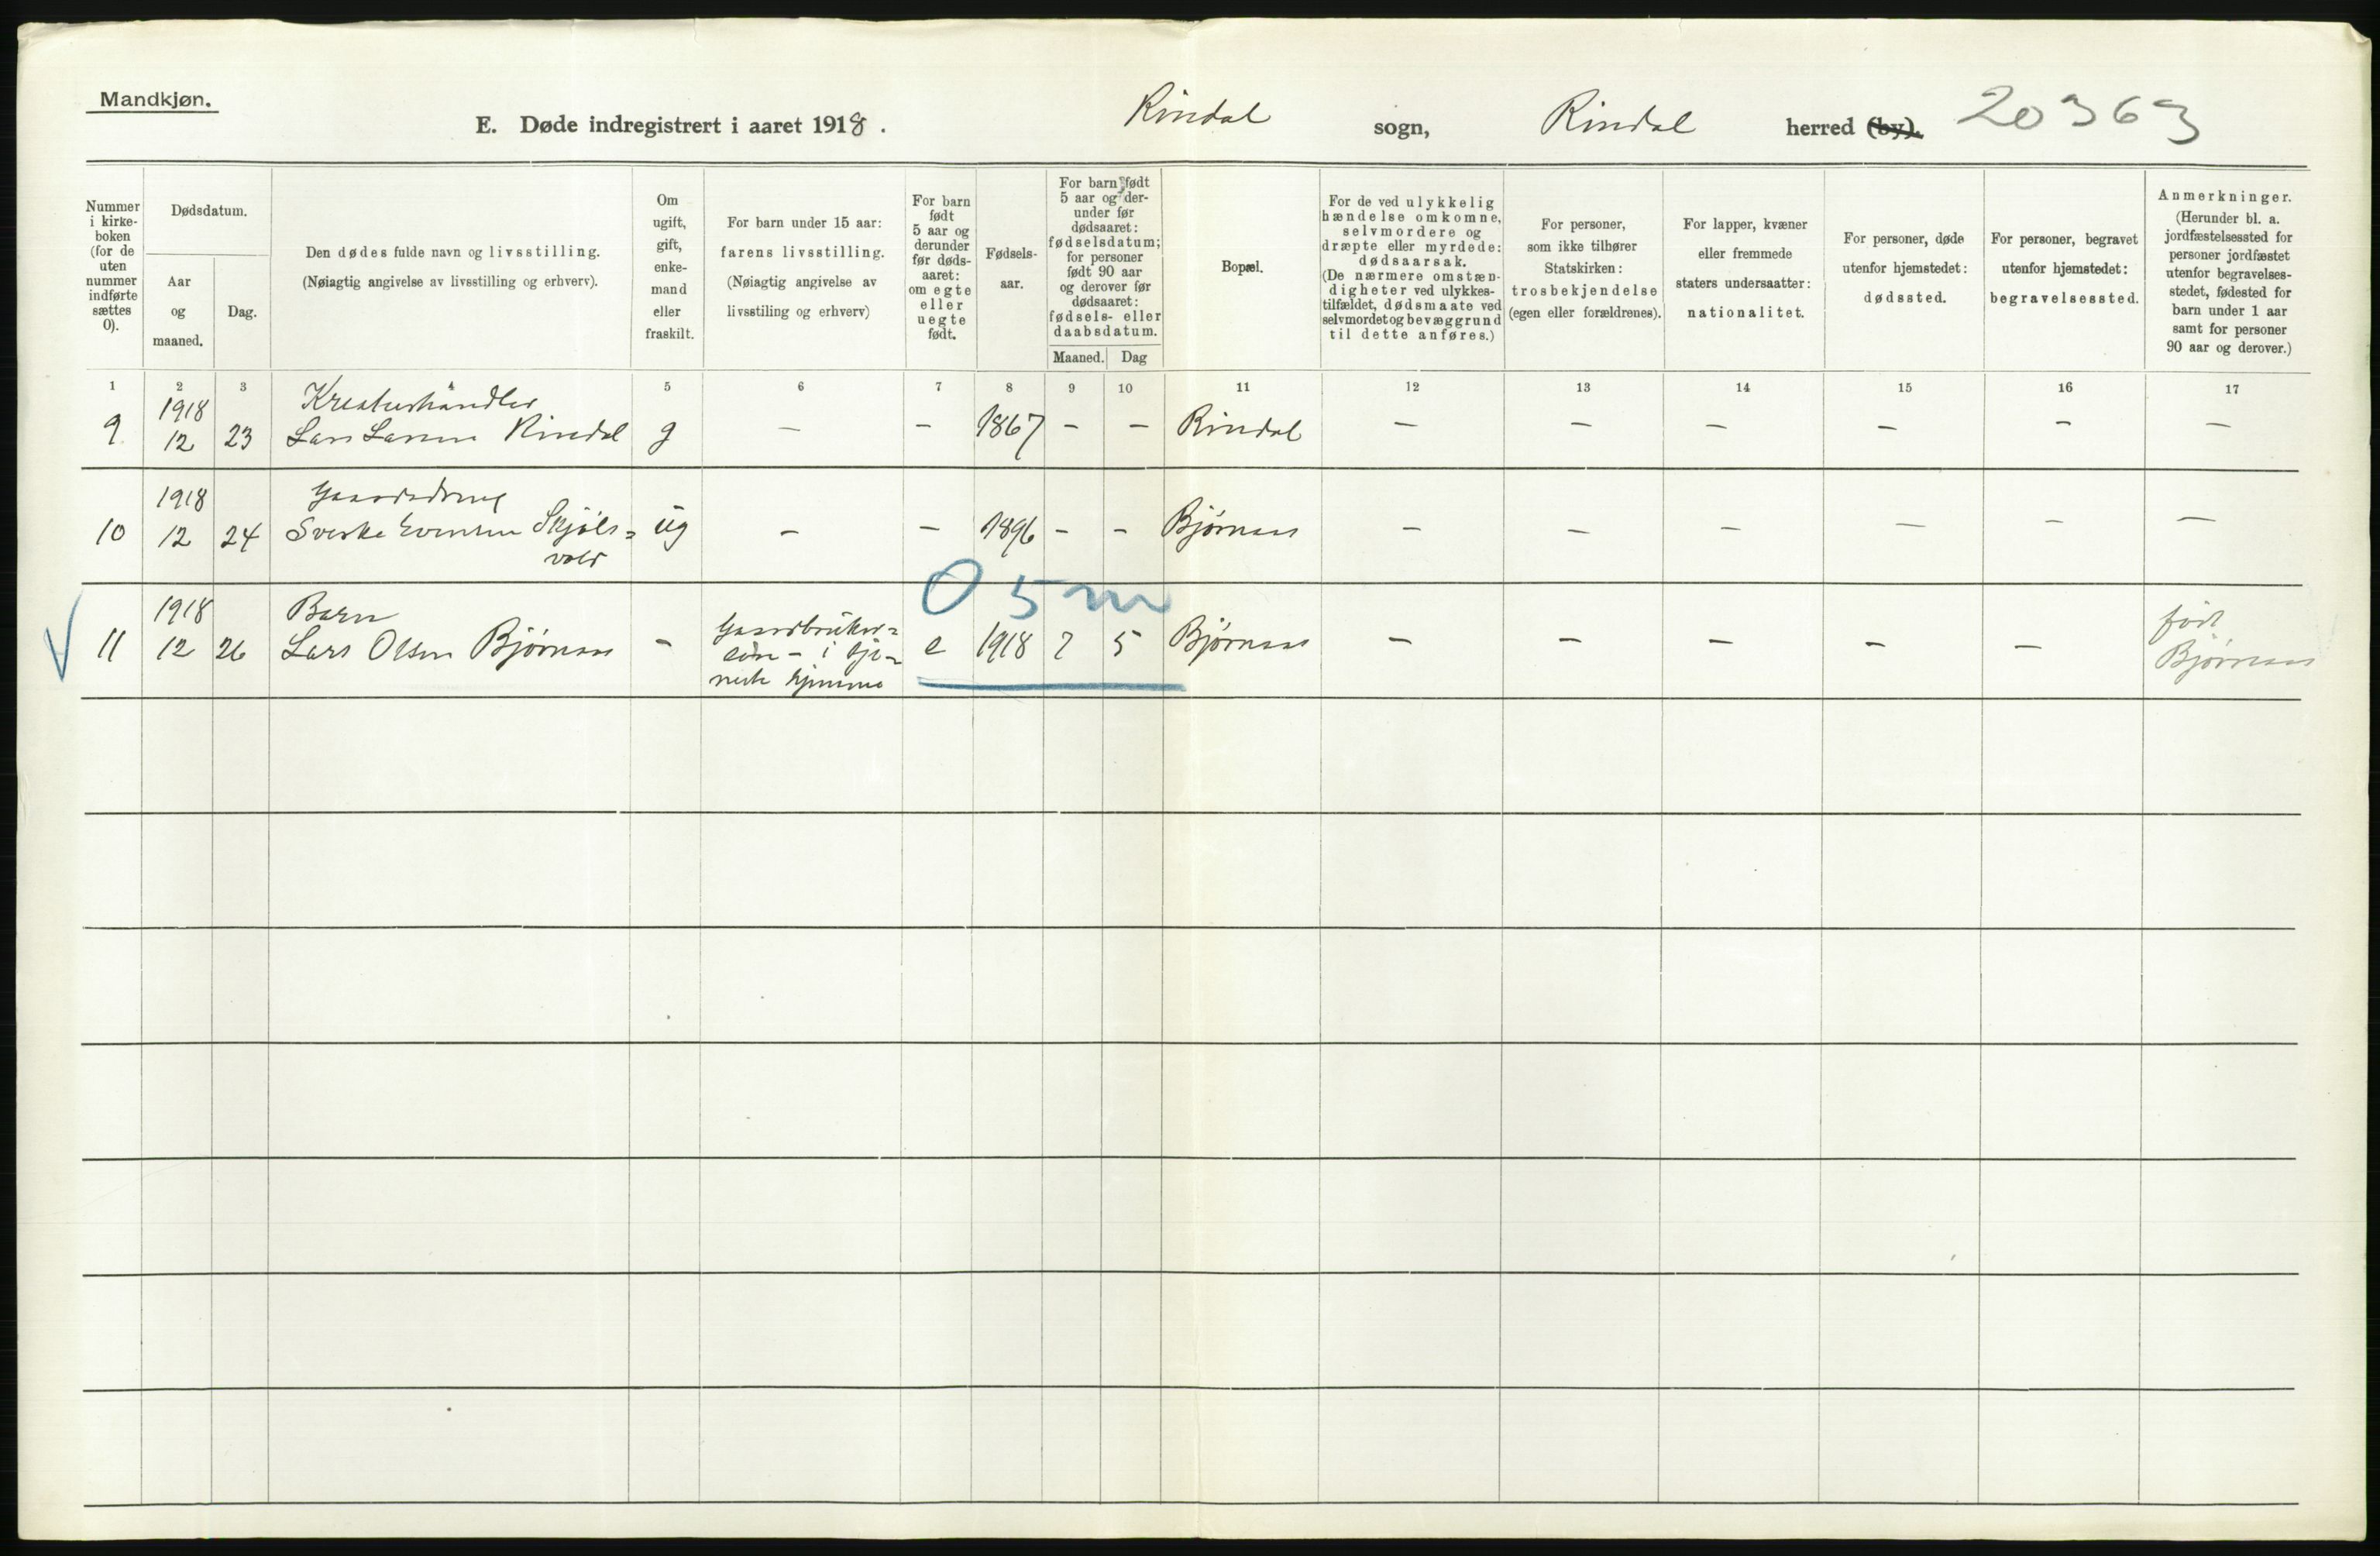 Mandkjøn.
E. Døde indregistrert i aaret 1918. Rindal sogn, Rindal herred (by). 20363
Nummer i kirke-boken (for de uten nummer indførte sættes 0).
Dødsdatum.
Aar og maaned.
Dag.
Den dødes fulde navn og livsstilling.
(Nøiagtig angivelse av livsstilling og erhverv).
Om ugift, gift, enke-mand eller fraskilt.
For barn under 15 aar: farens livsstilling. (Nøiagtig angivelse av livsstiling og erhverv)
For barn født 5 aar og derunder før døds-aaret: om egte eller uegte født.
Fødsels-aar.
For barn født 5 aar og der-under før dødsaaret: fødselsdatum; for personer født 90 aar og derover før dødsaaret: fødsels- eller daabsdatum.
Maaned. Dag
Bopæl.
For de ved ulykkelig hændelse omkomne, selvmordere og dræpte eller myrdede: dødsaarsak. (De nærmere omstæn-digheter ved ulykkes-tilfældet, dødsmaate ved selvmordet og bevæggrund til dette anføres.)
For personer, som ikke tilhører Statskirken: trosbekjendelse (egen eller forældrenes).
For lapper, kvæner eller fremmede staters undersaatter: nationalitet.
For personer, døde utenfor hjemstedet: dødssted.
For personer, begravet utenfor hjemstedet: begravelsessted.
Anmerkninger. (Herunder bl. a. jordfæstelsessted for personer jordfæstet utenfor begravelses-stedet, fødested for barn under 1 aar samt for personer 90 aar og derover.)
1 2 3 4 5 6 7 8 9 10 11 12 13 14 15 16 17
1918 Kreaturhandler
9 12 23 Lars Larsen Rindal g — — 1867 — — Rindal — — — — — —
1918 Gaardsdreng
10 12 24 Sverke Evensen Skjöls= ug — — 1896 — — Bjørnaas — — — — — —
vold
0 5 m
1918 Barn Gaardbruker= født
11 12 26 Lars Olsen Bjørnaas — i tje= e 1918 7 5 Bjørnaas — — — — — Bjørnaas
neste hjemme